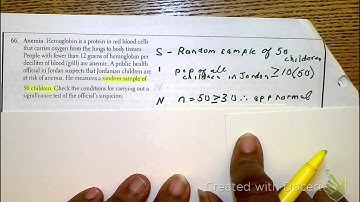 66. Anemia Hemoglobin is a protein in red blood cells
that carries oxygen from the lungs to body tissues.
People with fewer than 12 grams of hemoglobin per
deciliter of blood (g/dl) are anemic. A public health
official in Jordan suspects that Jordanian children are
at risk of anemia. He measures a random sample of
50 children. Check the conditions for carrying out a
significance test of the official's suspicion.
S - Random sample of 50
children
I pop of all
children in Jordan ≥ 10(50)
N n = 50 ≥ 30 ∴ app normal
Created with Doceri